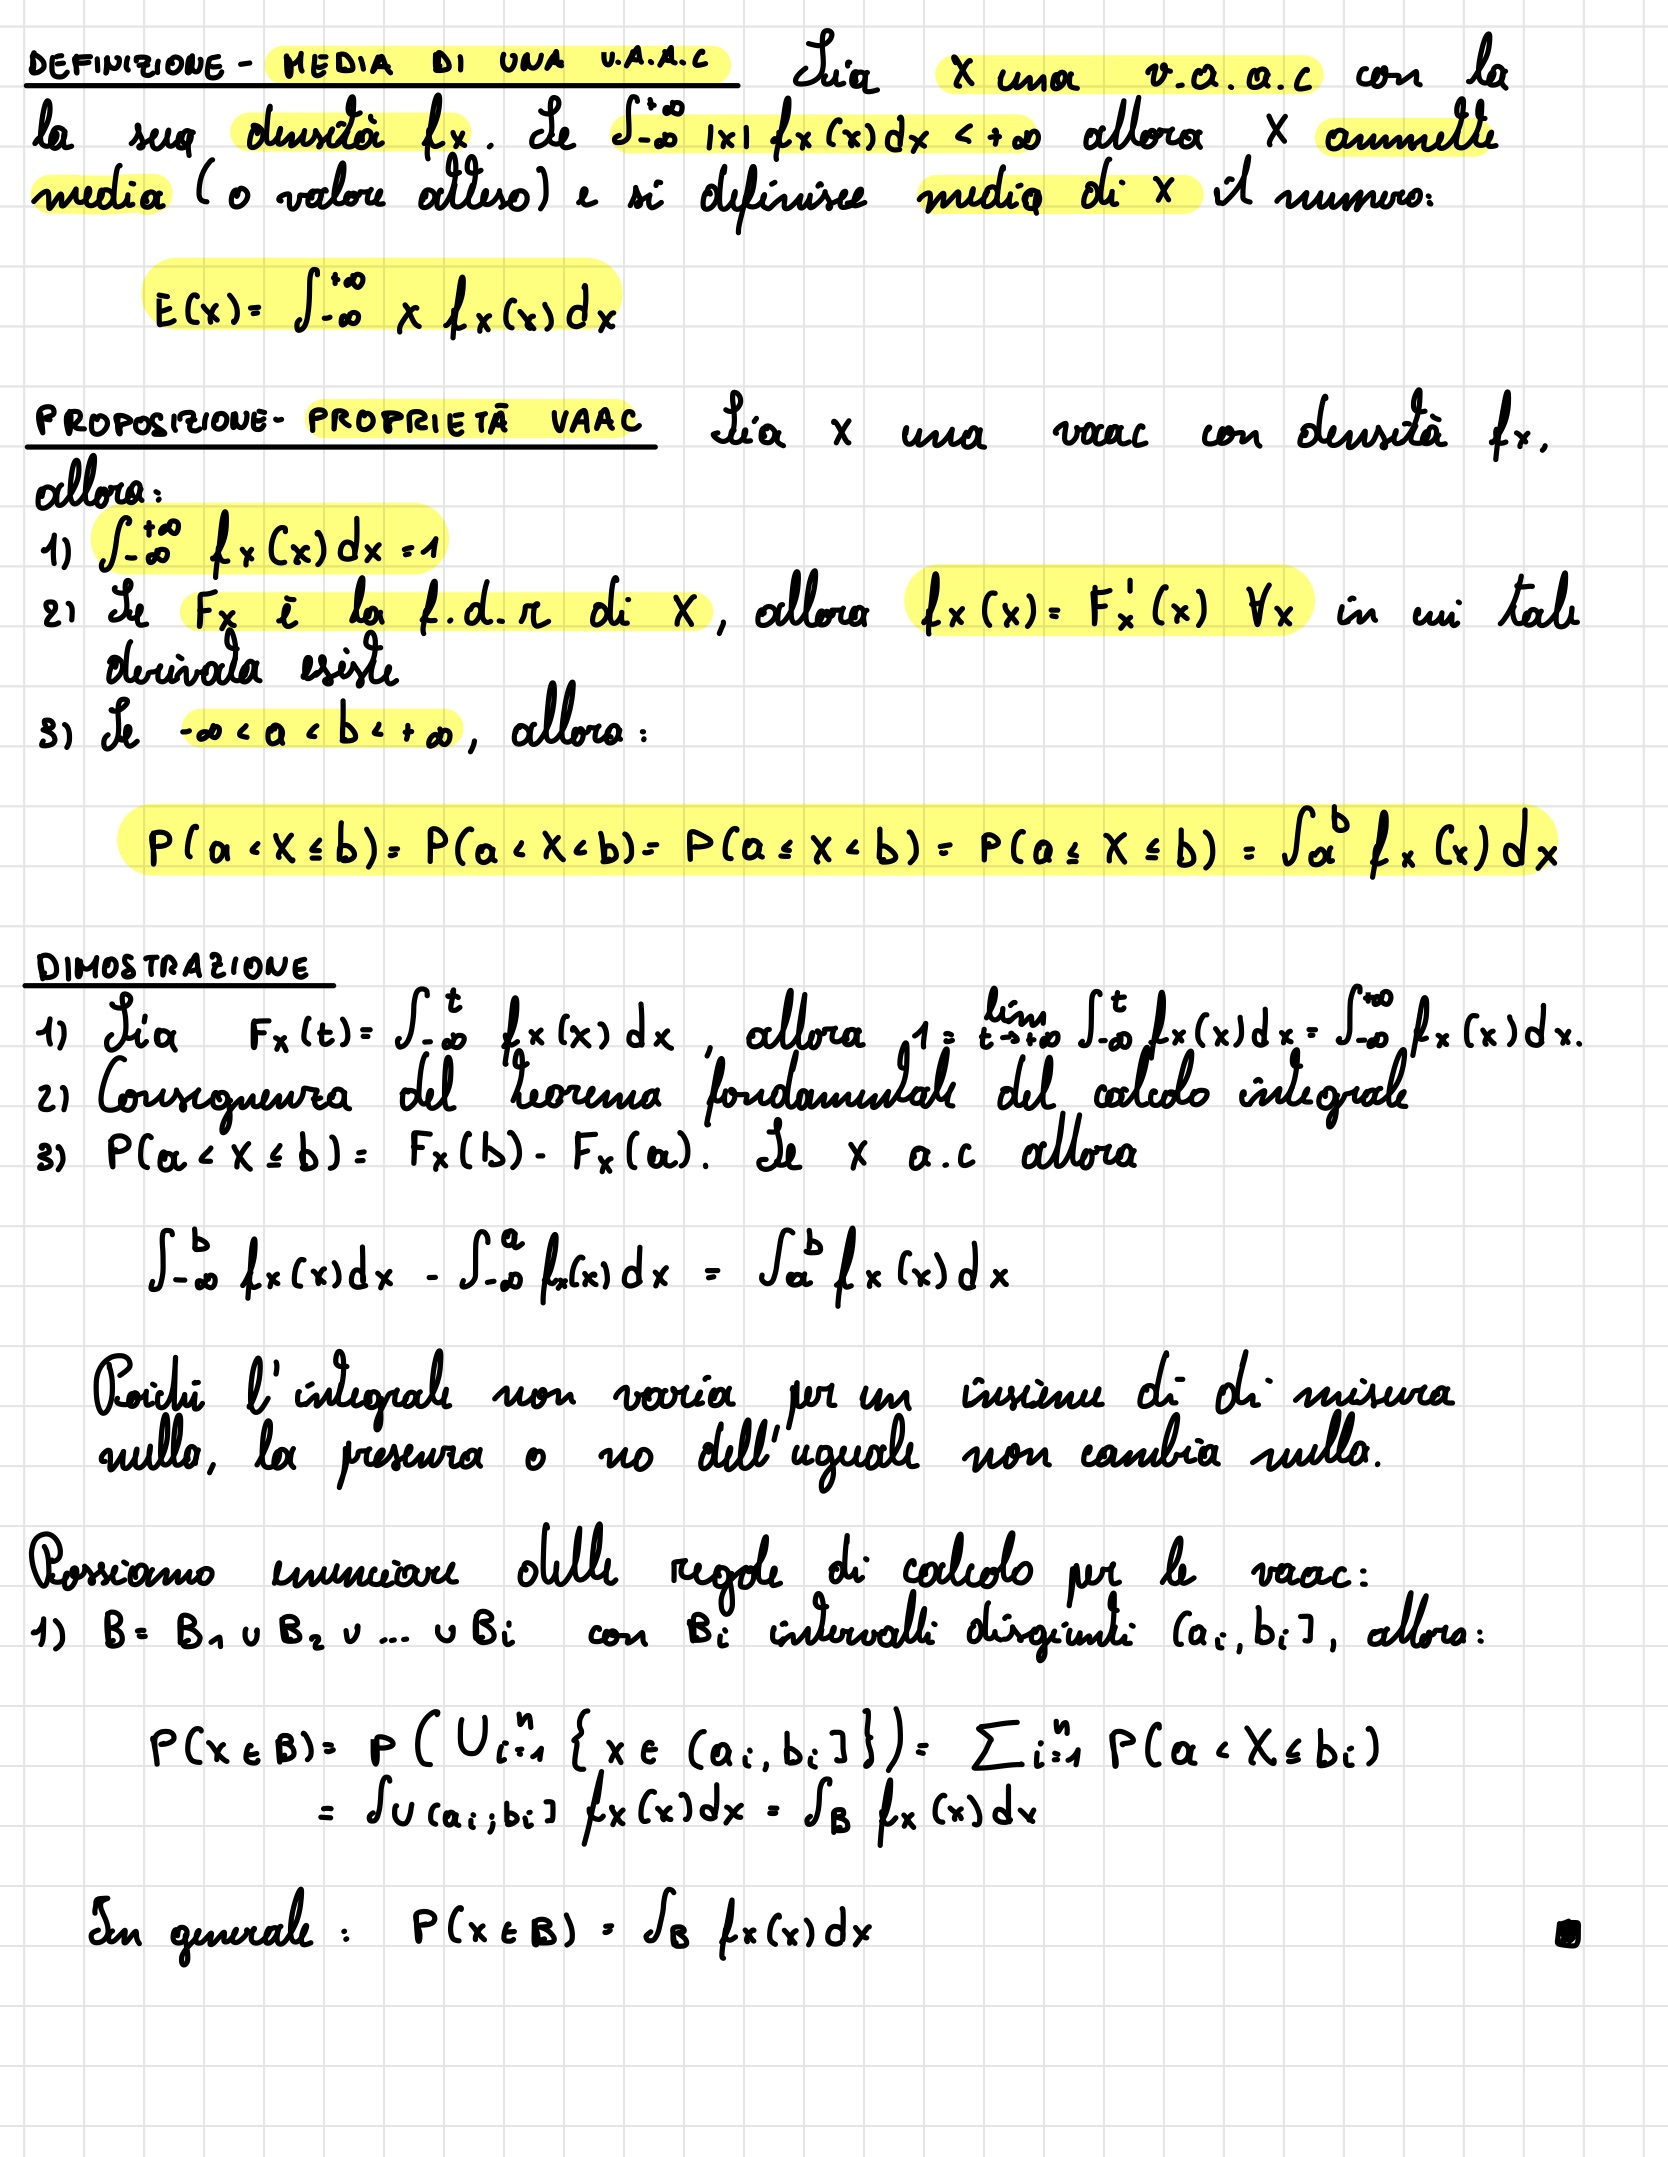 DEFINIZIONE - MEDIA DI UNA V.A.A.C Sia X una v.a.a.c con la
la sua densità fx. Se ∫-∞^+∞ |x| fx(x)dx < +∞ allora X ammette
media (o valore atteso) e si definisce media di X il numero:
E(x)= ∫-∞^+∞ x fx(x)dx
PROPOSIZIONE- PROPRIETÀ VAAC Sia X una vaac con densità fx,
allora:
1) ∫-∞^+∞ fx(x)dx =1
2) Se Fx è la f.d.r di X, allora fx(x)= Fx'(x) ∀x in cui tale
derivata esiste
3) Se -∞ < a < b < +∞, allora:
P(a < X ≤ b)= P(a < X < b)= P(a ≤ X < b) = P(a ≤ X ≤ b) = ∫a^b fx(x)dx
DIMOSTRAZIONE
1) Sia Fx(t)= ∫-∞^t fx(x)dx, allora 1= lim t→+∞ ∫-∞^t fx(x)dx= ∫-∞^+∞ fx(x)dx.
2) Conseguenza del teorema fondamentale del calcolo integrale
3) P(a < X ≤ b)= Fx(b)- Fx(a). Se X a.c allora
∫-∞^b fx(x)dx - ∫-∞^a fx(x)dx = ∫a^b fx(x)dx
Poiché l'integrale non varia per un insieme di di misura
nulla, la presenza o no dell'uguale non cambia nulla.
Possiamo enunciare delle regole di calcolo per le vaac:
1) B= B1 ∪ B2 ∪ ... ∪ Bi con Bi intervalli disgiunti (ai, bi], allora:
P(x ∈ B)= P(∪i=1^n {x ∈ (ai, bi]})= ∑i=1^n P(a < X ≤ bi)
= ∫∪(ai;bi] fx(x)dx = ∫B fx(x)dx
In generale: P(x ∈ B) = ∫B fx(x)dx